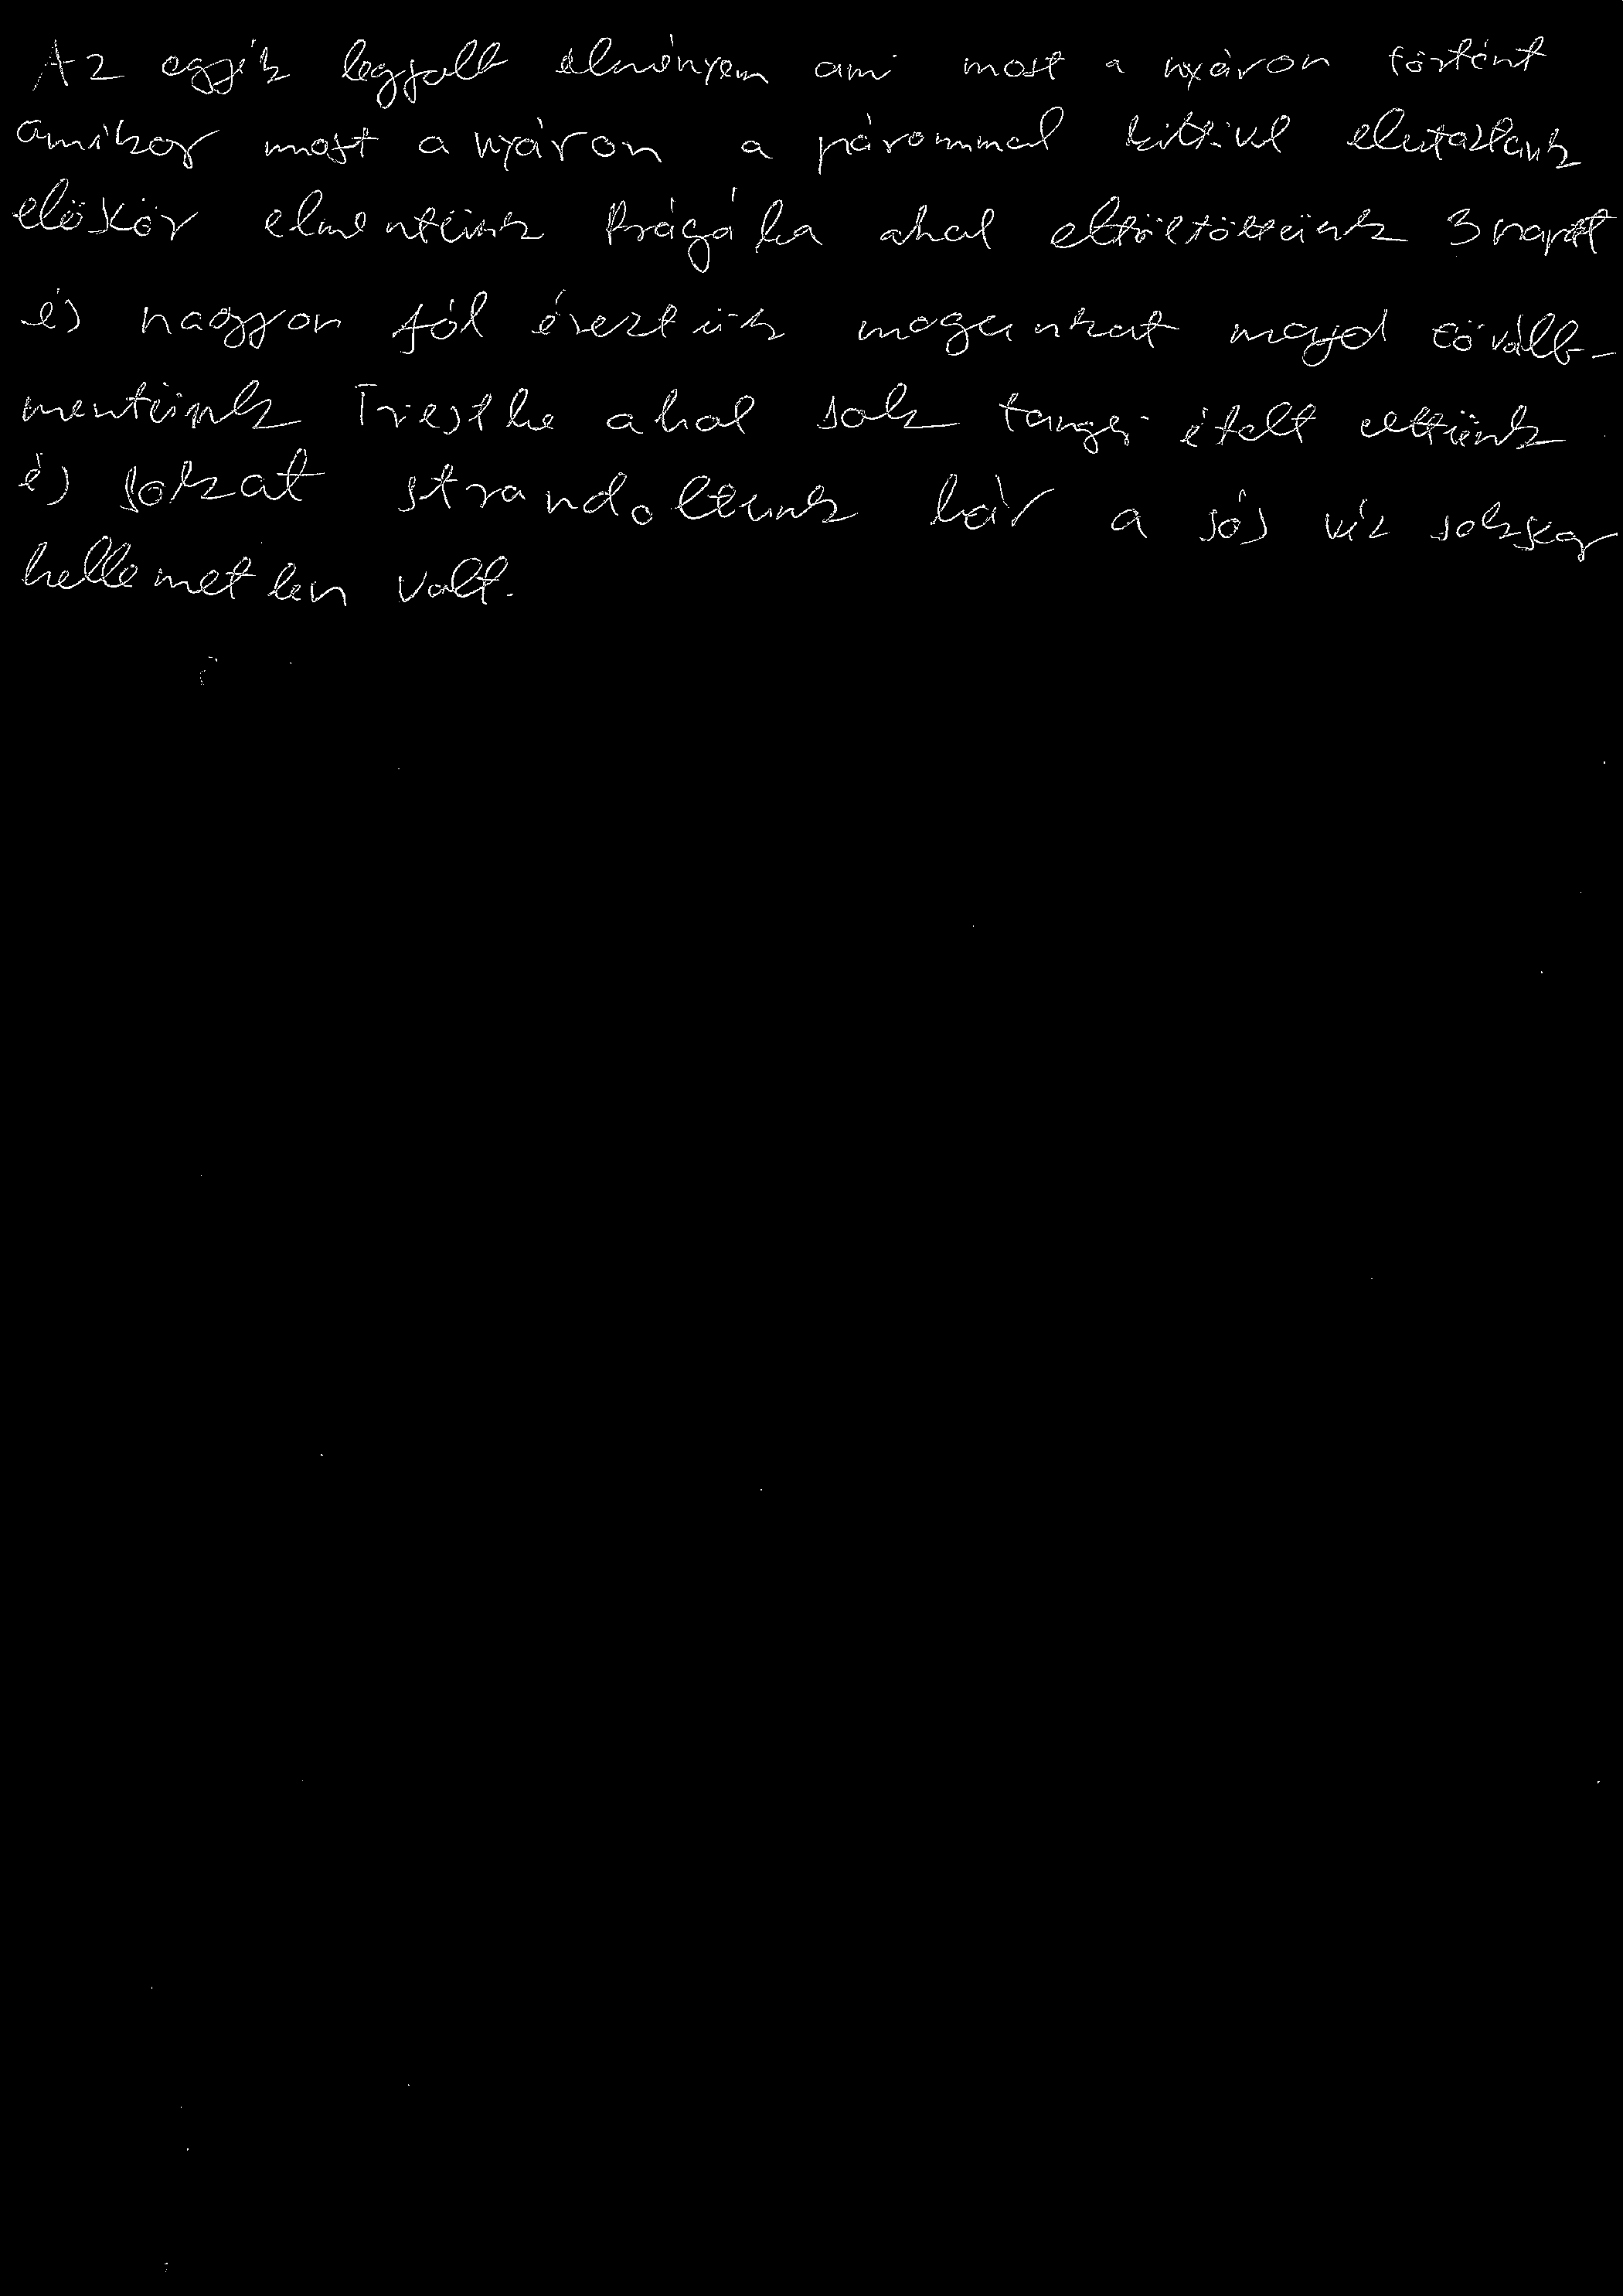 Az egyik legjobb élményem ami most a nyáron történt
amikor most a nyáron a párommal elutaztunk
előszőr elmentünk Prágába ahol eltöltöttünk 3 napot
és nagyon jól éreztük magunkat majd tovább-
mentünk Triestbe ahol sok tengeri ételt ettünk
és sokat strandoltunk bár a sós víz sokszor
kellemetlen volt.